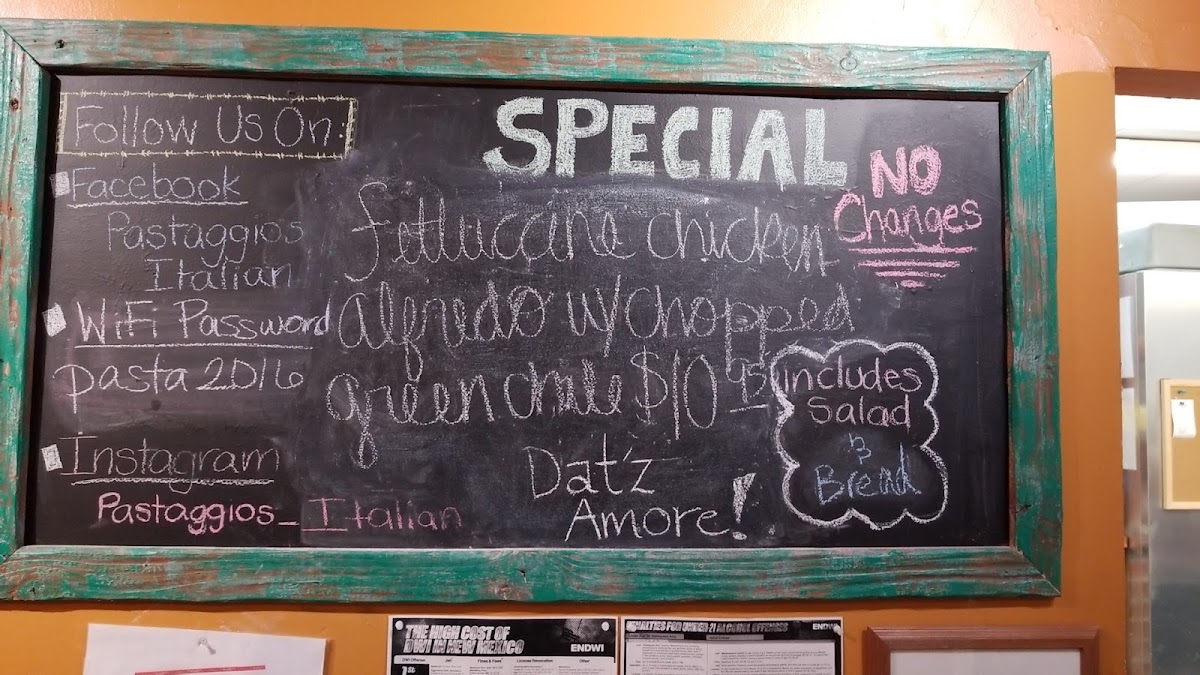 Follow Us On:
Facebook
Pastaggios
Italian
WiFi Password
pasta 2016
Instagram
Pastaggios_Italian
SPECIAL
NO
Changes
fettuccine chicken
alfredo w/chopped
green chile $10.95
includes
Salad
&
Bread
Dat'z
Amore!
THE HIGH COST OF
DWI IN NEW MEXICO
ENDWI
DWI Offense
Jail
Fines & Fees
License Revocation
Other
1st
PENALTIES FOR UNDER 21 ALCOHOL OFFENSES
ENDWI